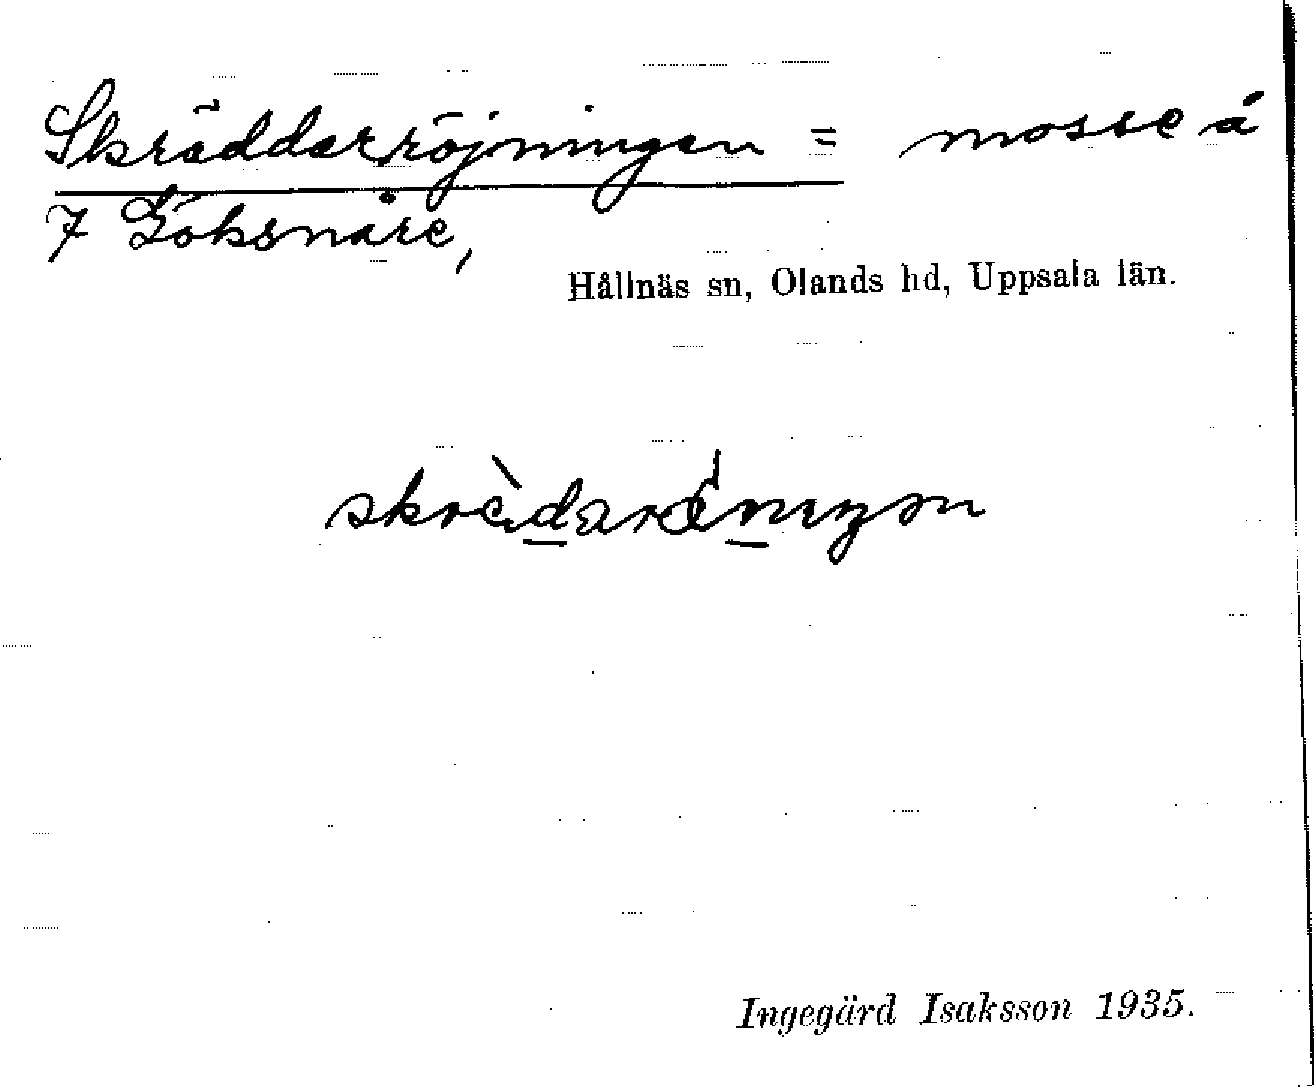 Skräddarröjningen = mosse å
7 Göksnåre,
Hållnäs sn, Olands hd, Uppsala län.
Ingegärd Isaksson 1935.